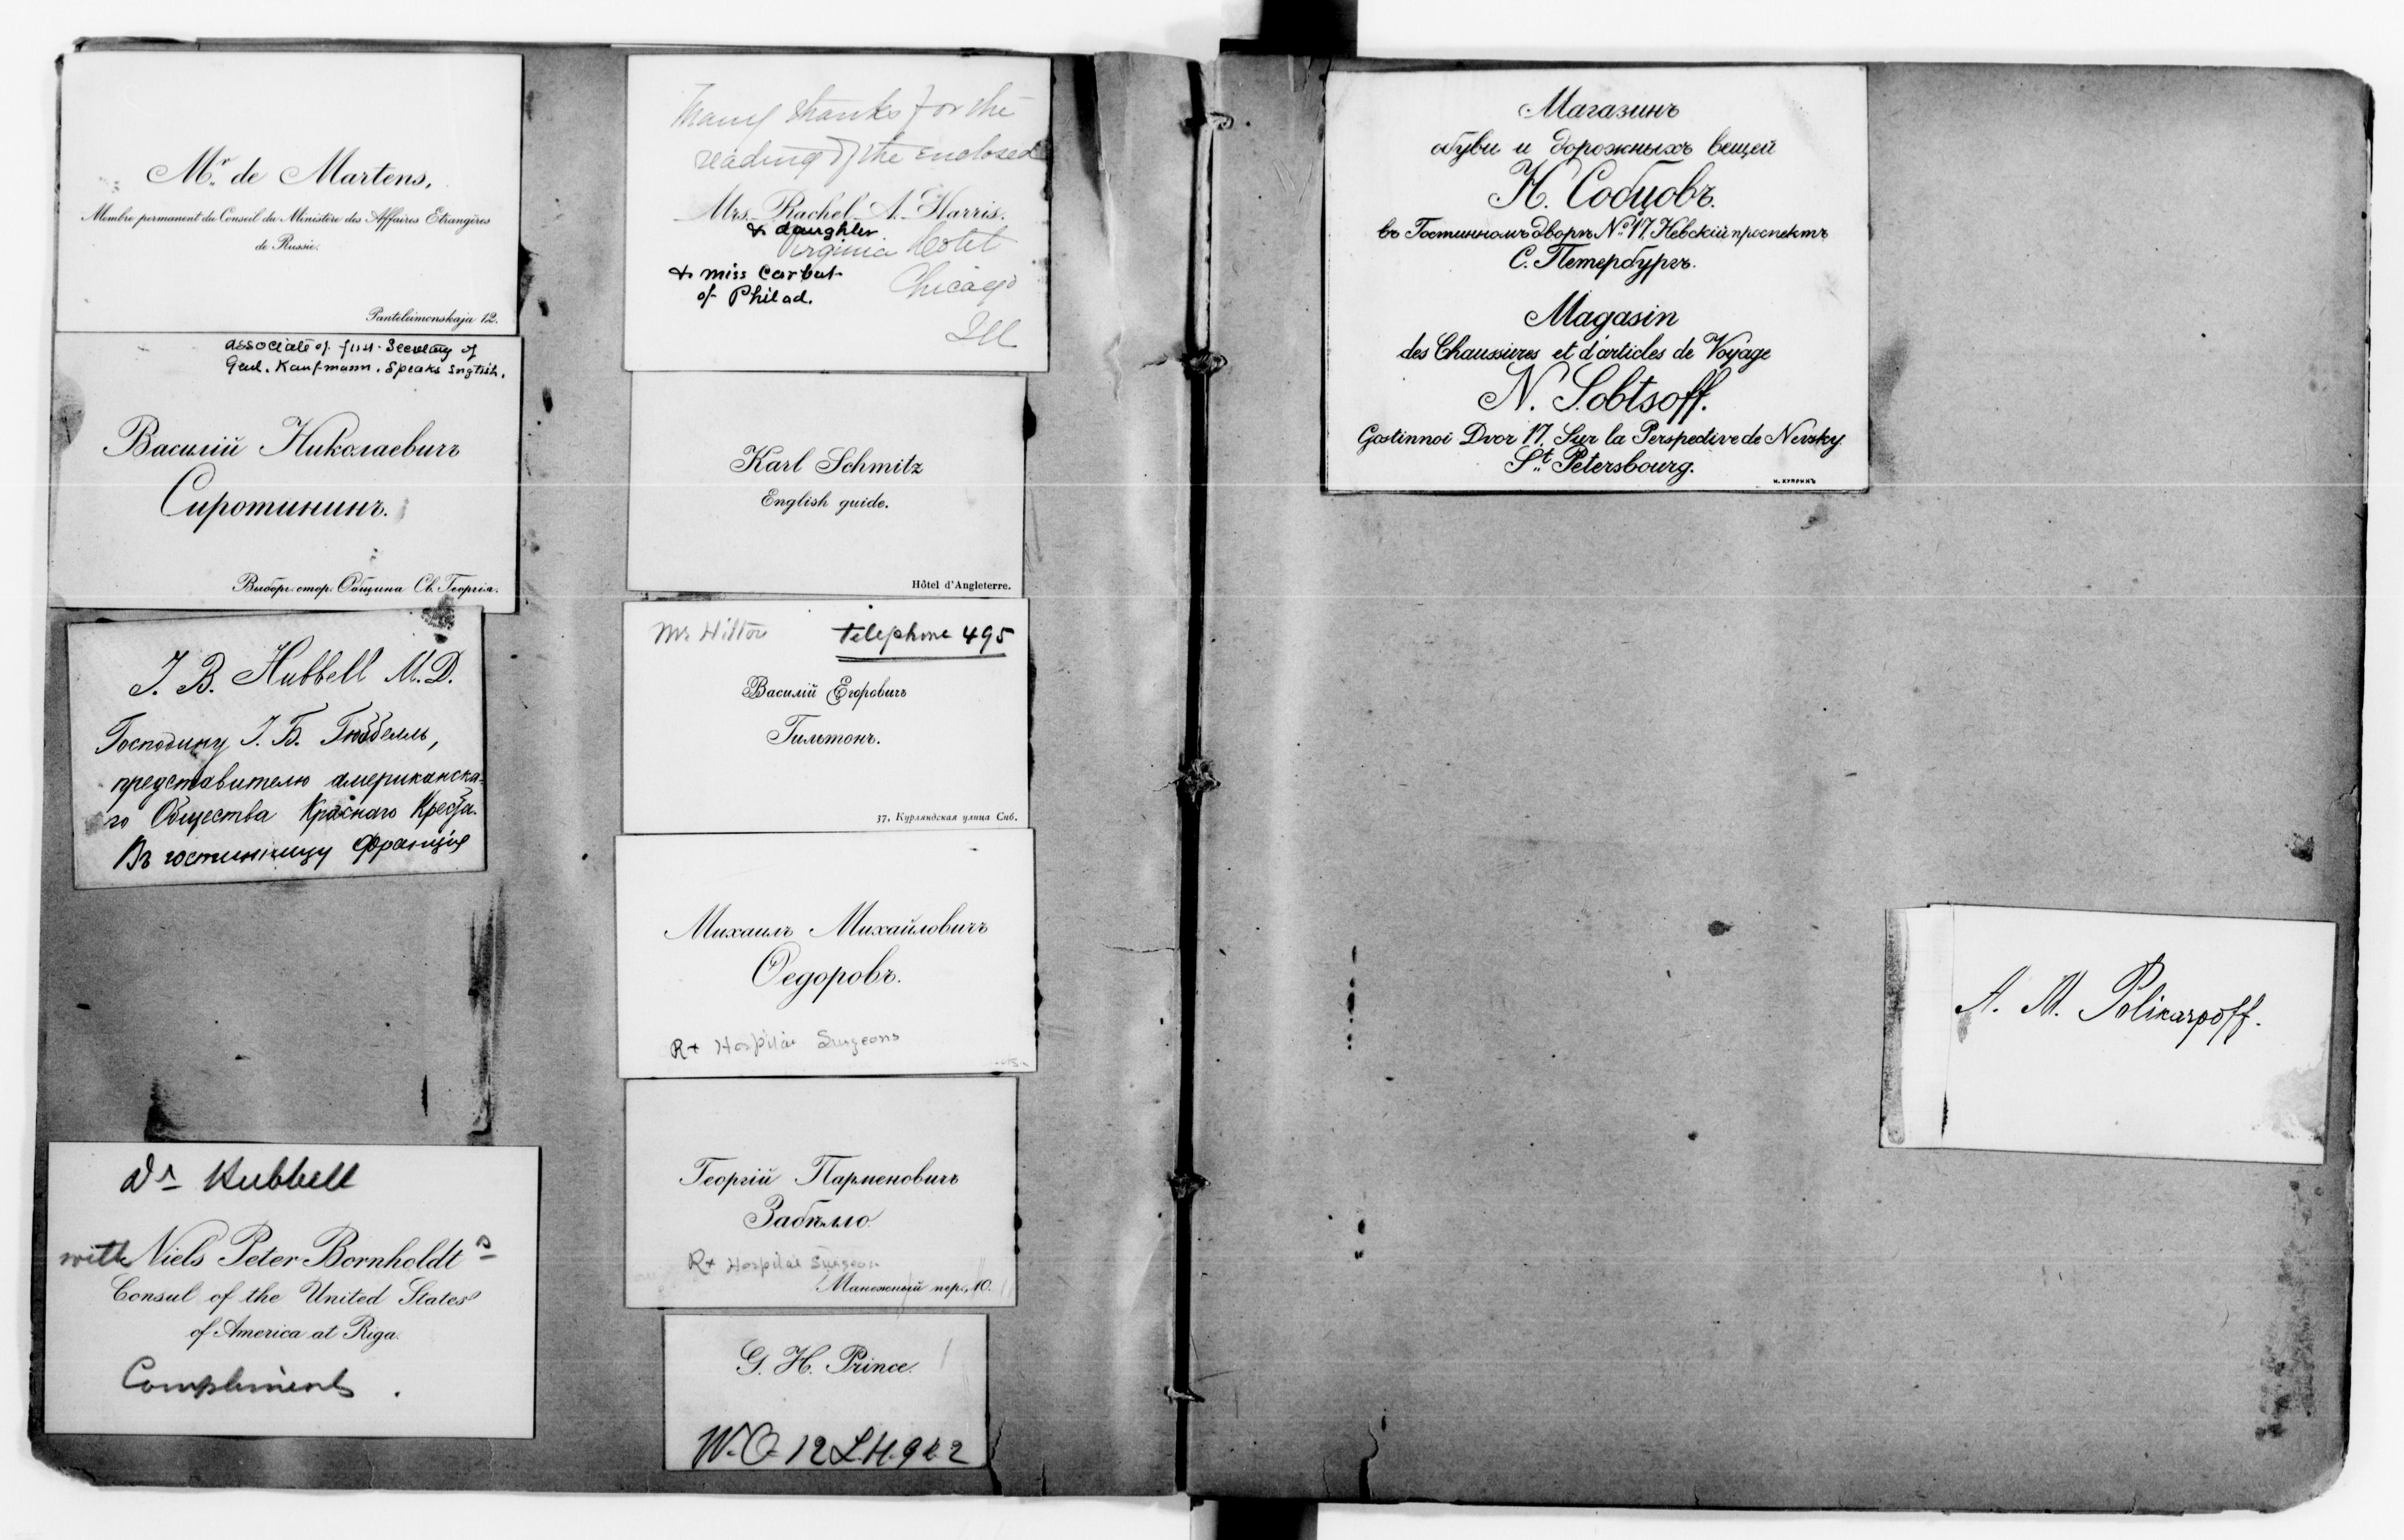 Mr. de Martens,
Membre permanent du Conseil du Ministère des Affaires Etrangères
de Russie.
Panteleimonskaja 12.
associate of first Secretary of
Genl. Kaufmann. Speaks English.
Василій Николаевичъ
Сиротининъ.
Выборг. стор. Община Св. Георгія.
J. B. Hubbell M.D.
Господину J. Б. Гюббелль,
представителю американска-
го Общества Краснаго Креста.
Въ гостинницу Франція
Dr Hubbell
with Niels Peter Bornholdt s
Consul of the United States
of America at Riga.
Compliments.
Many thanks for the
reading of the enclosed
Mrs. Rachel A. Harris.
& daughter
Virginia Hotel
& miss Carbut
of Philad.
Chicago
Ill
Karl Schmitz
English guide.
Hôtel d'Angleterre.
Mr Hilton telephone 495
Василій Егоровичъ
Гильтонъ.
37, Курляндская улица Спб.
Михаилъ Михайловичъ
Ѳедоровъ.
R+ Hospital Surgeons
Георгій Парменовичъ
Забѣлло
R+ Hospital Surgeon
Манежный пер., 10.
G. H. Prince.
W.O. 12 L.H. 9
Магазинъ
обуви и дорожныхъ вещей
Н. Собцовъ.
въ Гостинномъ дворѣ № 17, Невскій проспектъ
С. Петербургъ.
Magasin
des Chaussures et d'articles de Voyage
N. Sobtsoff.
Gostinnoi Dvor 17, Sur la Perspective de Nevsky
St. Petersbourg.
Н. КУПРИНЪ
A. M. Polikarpoff.